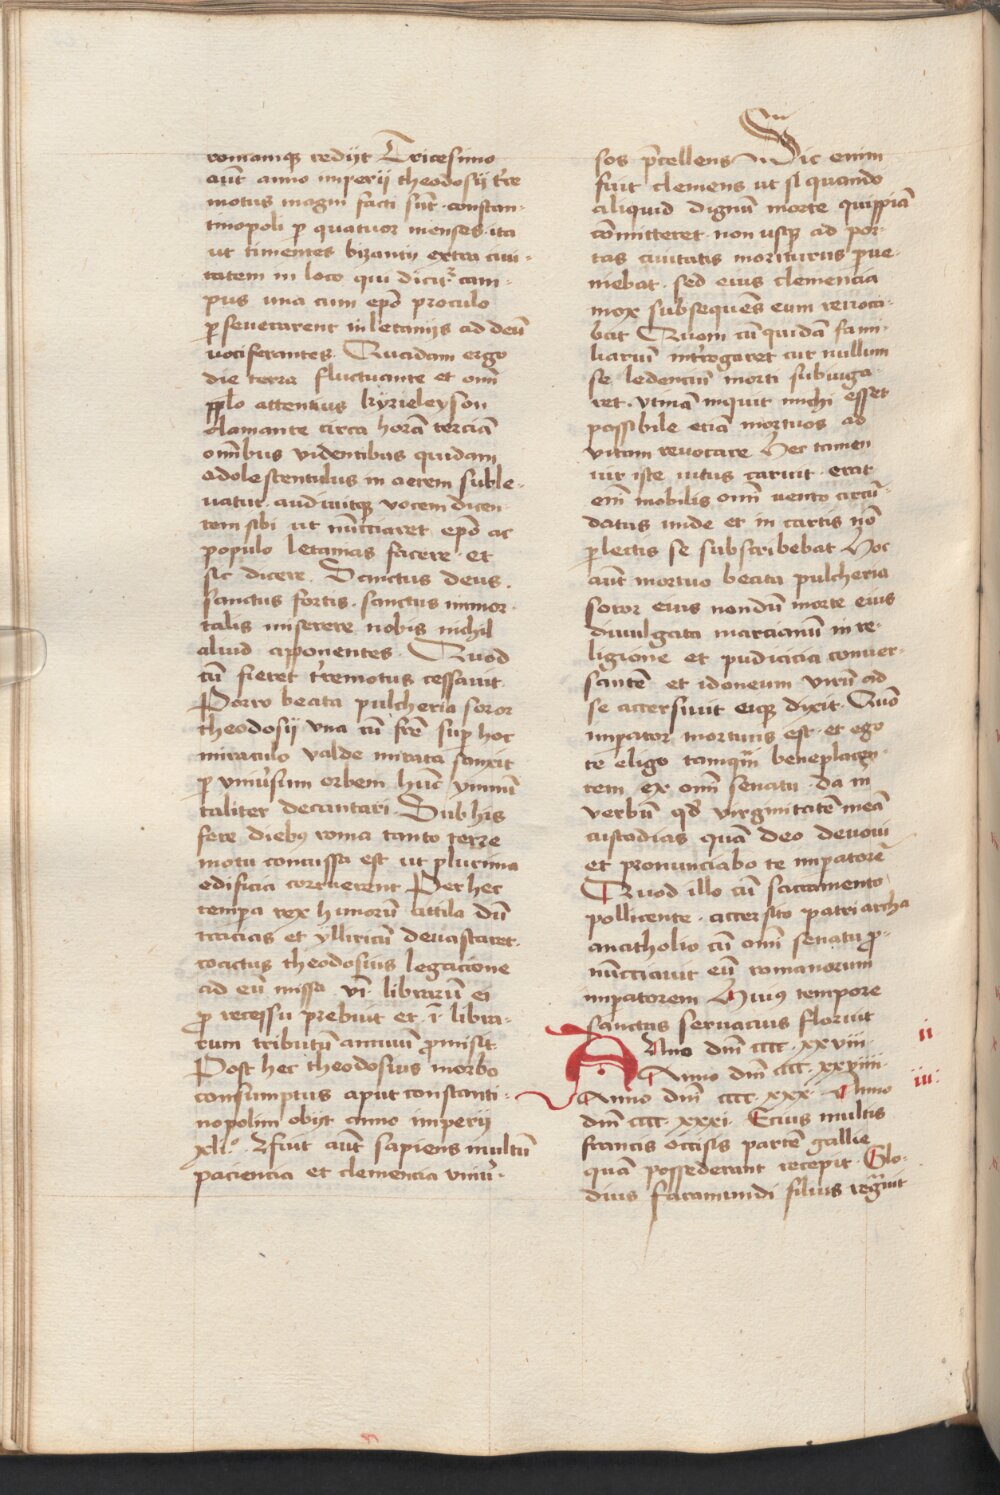 romamqꝫ redijt Tricesimo
aūt anno imperij theodosij t̄re
motus magni facti sūt · constan-
tinopoli ꝑ quatuor menses · ita
ut timentes bizantij extra ciui-
tatem in loco qui dicit᷑ cam-
pus una cum ep̄o proculo
ꝑseuerarent in letanijs ad deū
vociferantes · Quadam ergo
die terra fluctuante et om̄i
pp̄lo attentius kyrieleyson
clamante circa horā terciā
om̄ibus videntibus quidam
adolescentulus in aerem suble-
uatur · audiuitqꝫ vocem dicen-
tem sibi ut nūcciaret ep̄o ac
populo letanias facere · et
sic dicere · Sanctus deus ·
sanctus fortis · sanctus immor-
talis miserere nobis nichil
aliud apponentes · Quod
cū fieret t̄remotus cessauit
Porro beata pulcheria soror
theodosij vna cū fr̄e suꝑ hoc
miraculo valde mirata sanxit
ꝑ vniūsum orbem hūc ymnū
taliter decantari · Sub his
fere diebꝰ roma tanto terre
motu concussa est ut ꝑlurima
edificia corruerent Per hec
tempora rex hunorū attila dū
tracias et ylliricū deuastaret ·
coactus theodosius legacione
ad eū missa · vi · librarū ei
ꝓ recessu prebuit et · i · libra-
rum tributū annuū ꝓmisit ·
Post hec theodosius morbo
consumptus aput constanti-
nopolim obijt anno imperij
xli° · Hfuit aūt sapiens multū
paciencia et clemencia vniū-
sos p̄cellens Sic enim
fuit clemens ut si quando
aliquid dignū morte quippiā
cōmitteret · non usqꝫ ad por-
tas ciuitatis moriturus ꝑue-
niebat · sed eius clemencia
mox subsequēs eum reuoca-
bat Quom cū quidā fami-
liariū int̄rogaret cur nullum
se ledenciū morti subiuga-
ret · vtinā inquit michi esset
possibile eciā mortuos ad
vitam reuocare Hec tamen
vir iste intus caruit · erat
em̄ mobilis om̄i vento circū-
datus unde et in cartis nō
ꝑlectis se subscribebat Hoc
aūt mortuo beata pulcheria
soror eius nondū morte eius
diuulgata marcianū in re-
ligione et pudicicia conuer-
santē et idoneum virū ad
se accersiuit eiqꝫ dixit · Quō
imꝑator mortuus est · et ego
te eligo tamqᷓm beneplacen-
tem ex om̄i senatu · da m
verbū qd̄ virginitatē meā
custodias quā deo deuoui
et pronunciabo te imꝑatorē
Quod illo cū sacramento
pollicente · accersito patriarcha
anatholio cū om̄i senatu ꝓ-
nūcciauit eū romanorum
imꝑatorem Huiꝰ tempore
sanctus seruacius floruit
ANno dn̄i cccc · xxviii ·
Anno dn̄i cccc · xxviiii ·
Anno dn̄i cccc · xxx · Anno
dn̄i cccc · xxxi · Ecius multis
francis occisis partē gallie
quā possederant recepit · Clo-
dius faramundi filius regᷓuit
ii
iii ·